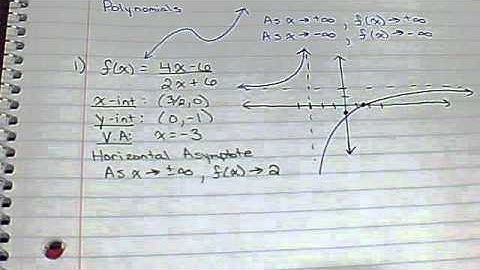 Polynomials
As x → +∞, f(x) → +∞
As x → -∞, f(x) → -∞
1) f(x) = 4x-6
2x+6
x-int: (3/2, 0)
y-int: (0, -1)
V.A: x = -3
Horizontal Asymptote
As x → ±∞, f(x) → 2